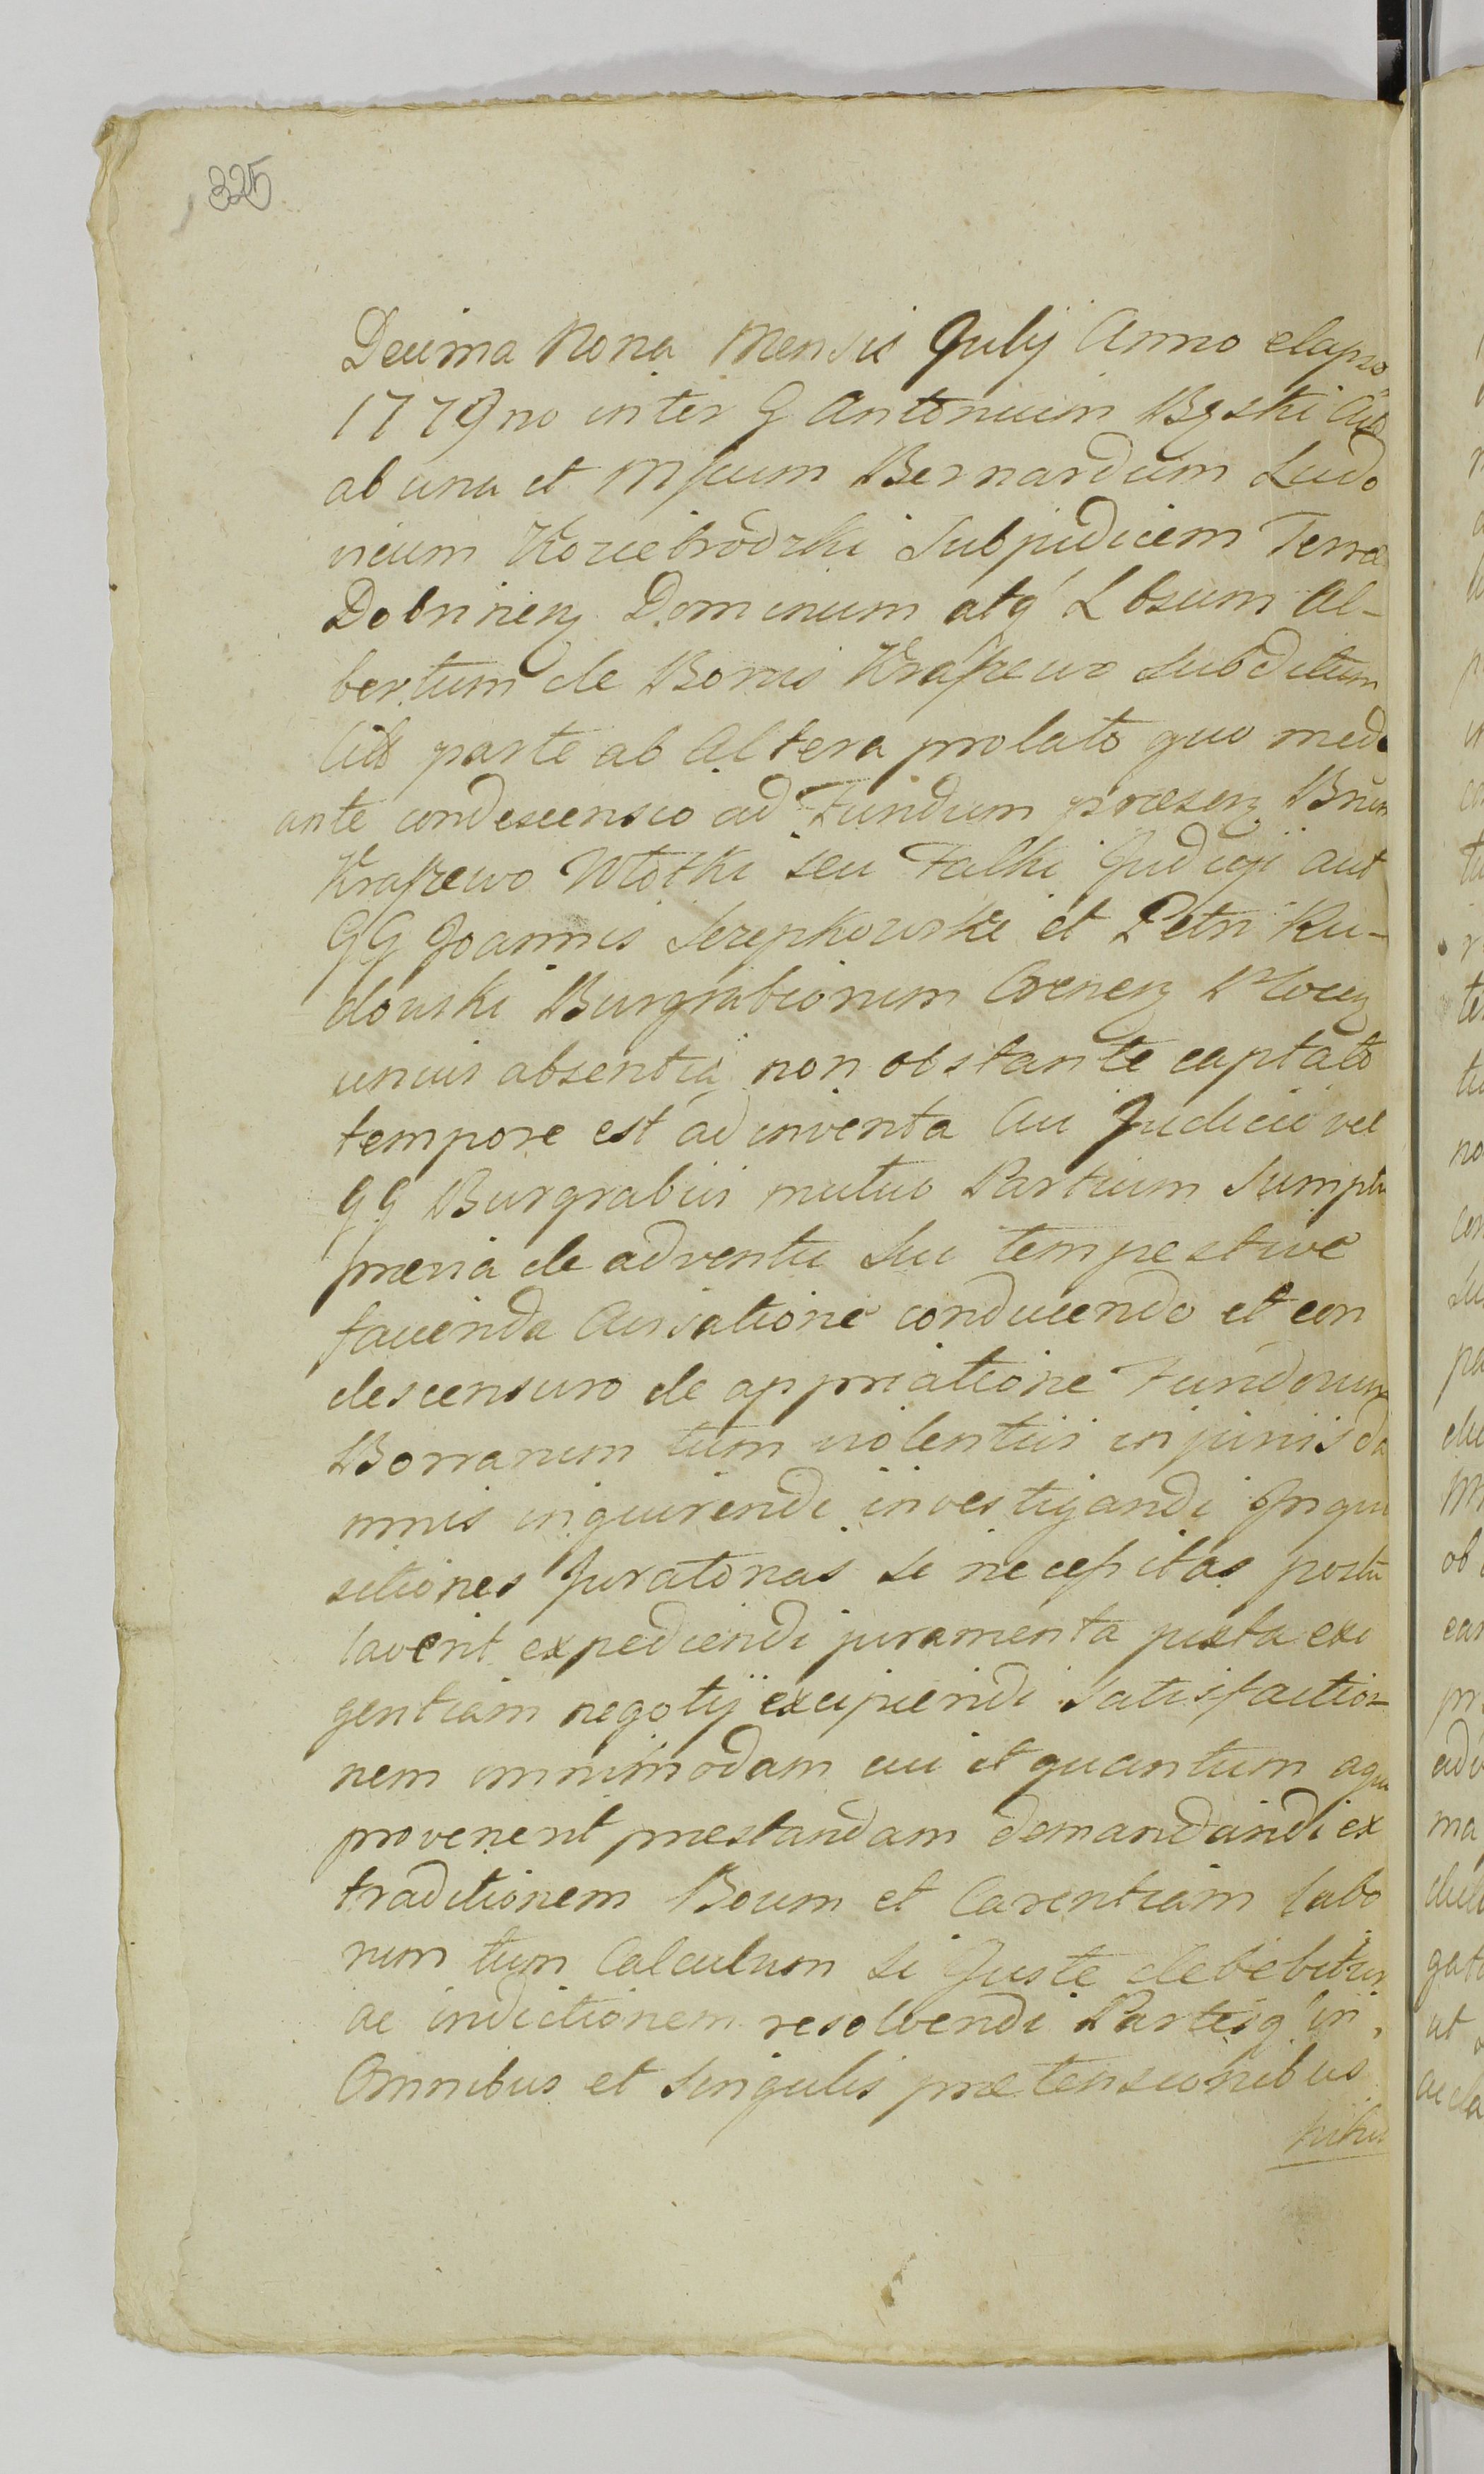 325
Decima Nona Mensis Julij Anno elapso
1779no inter G Antonium Bęski
ab una et Mfcum Bernardum Ludo
vicum Koziebrodzki Subjudicem Terræ
Dobrinen Dominum atq' Lbsum Al-
bertum de Bonis Krajzewo Subditum
parte ab Altera prolato quo medi
ante condescensio ad Fundum præsen Bnrum
Krajzewo Wtoſki seu Falki Judicij aut
GG Joannis Szrepkowski et Petri Ru-
dowski Burgrabiorum Crenen Plocen
unius absentia non obstante captato
tempore est adinventa Cui Judicio vel
GG Burgrabiis mutuo Partium Sumptu
prævia de adventu Sui tempestive
facienda Avisatione conducendo et con
descensuro de appriatione Fundorum
Bonorum tum violentiis injuriis da
mnis inquirendi investigandi Inqui
sitiones Juratorias si necessitas postu
laverit expediendi juramenta juxta exi
gentiam negotij excipiendi Satisfactio-
nem omnimodam cui et quantum
provenerit præstandam demandandi ex
traditionem Boum et Carentiam labo
rum tum Calculum Si Juste debebitur
ac indictionem resolvendi Partesq' in
Omnibus et Singulis prætensionibus